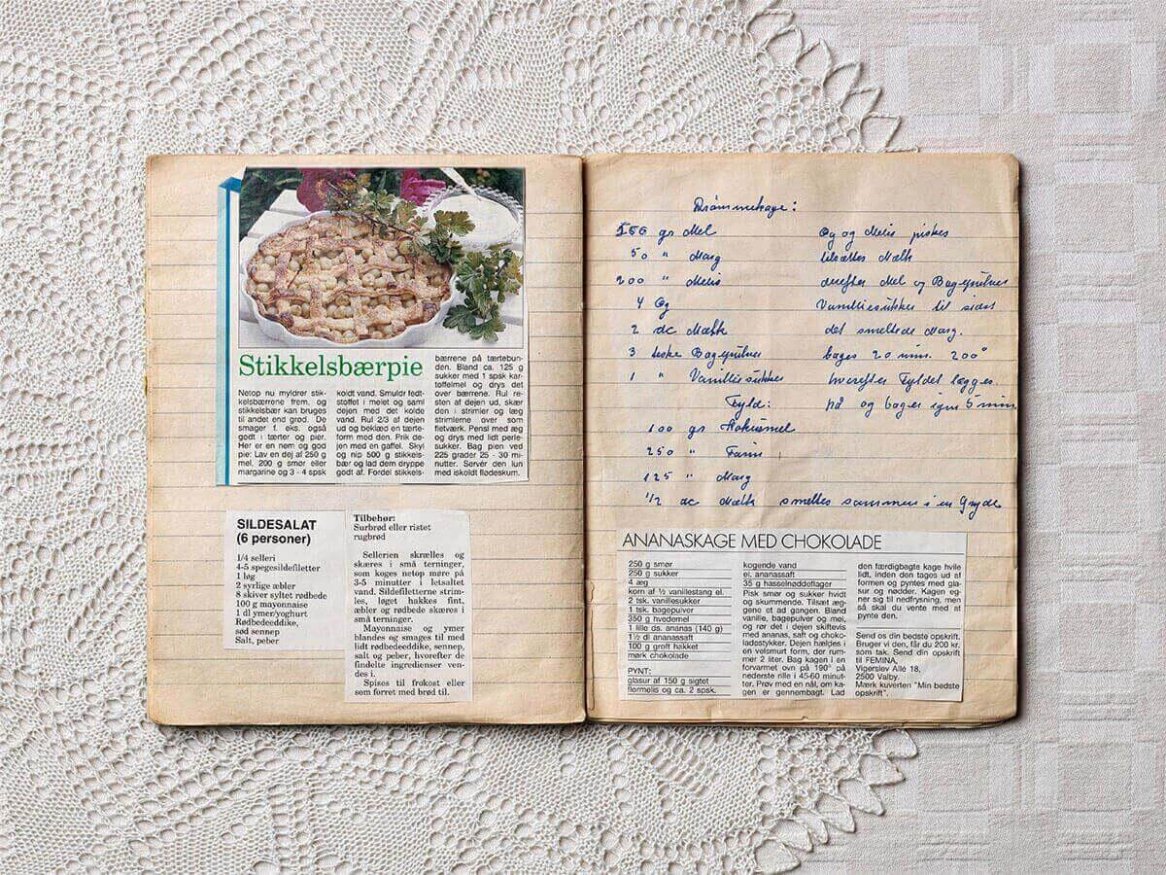 Stikkelsbærpie
Netop nu myldrer stik-
kelsbærrene frem, og
stikkelsbær kan bruges
til andet end grød. De
smager f. eks. også
godt i tærter og pier.
Her er en nem og god
pie: Lav en dej af 250 g
mel, 200 g smør eller
margarine og 3 - 4 spsk
koldt vand. Smuldr fedt-
stoffet i melet og saml
dejen med det kolde
vand. Rul 2/3 af dejen
ud og beklæd en tærte-
form med den. Prik de-
jen med en gaffel. Skyl
og nip 500 g stikkels-
bær og lad dem dryppe
godt af. Fordel stikkels-
bærrene på tærtebun-
den. Bland ca. 125 g
sukker med 1 spsk kar-
toffelmel og drys det
over bærrene. Rul re-
sten af dejen ud, skær
den i strimler og læg
strimlerne over som
fletværk. Pensl med æg
og drys med lidt perle-
sukker. Bag pien ved
225 grader 25 - 30 mi-
nutter. Servér den lun
med iskoldt flødeskum.
SILDESALAT
(6 personer)
1/4 selleri
4-5 spegesildefiletter
1 løg
2 syrlige æbler
8 skiver syltet rødbede
100 g mayonnaise
1 dl ymer/yoghurt
Rødbedeeddike,
sød sennep
Salt, peber
Tilbehør:
Surbrød eller ristet
rugbrød
Sellerien skrælles og
skæres i små terninger,
som koges netop møre på
3-5 minutter i letsaltet
vand. Sildefiletterne strim-
les, løget hakkes fint,
æbler og rødbede skæres i
små terninger.
Mayonnaise og ymer
blandes og smages til med
lidt rødbedeeddike, sennep,
salt og peber, hvorefter de
findelte ingredienser ven-
des i.
Spises til frokost eller
som forret med brød til.
Drømmekage:
gr Mel
50 " Marg
200 " Melis
4 Æg
2 dc Mælk
3 teske Bagepulver
1 " Vanilliesukker
Æg og Melis piskes
tilsættes Mælk
derefter Mel og Bagepulver
Vanilliesukker til sidst
det smeltede Marg.
bages 20 min. 200°
hvorefter Fyldet lægges
på og bages igen 5 min
Fyld:
100 gr Kokusmel
250 " Farin
125 " Marg
1/2 dc Mælk smeltes sammen i en Gryde
ANANASKAGE MED CHOKOLADE
250 g smør
250 g sukker
4 æg
korn af ½ vanillestang el.
2 tsk. vanillesukker
1 tsk. bagepulver
350 g hvedemel
1 lille ds. ananas (140 g)
1½ dl ananassaft
100 g groft hakket
mørk chokolade
PYNT:
glasur af 150 g sigtet
flormelis og ca. 2 spsk.
kogende vand
el. ananassaft
35 g hasselnøddeflager
Pisk smør og sukker hvidt
og skummende. Tilsæt æg-
gene et ad gangen. Bland
vanille, bagepulver og mel,
og rør det i dejen skiftevis
med ananas, saft og choko-
ladestykker. Dejen hældes i
en velsmurt form, der rum-
mer 2 liter. Bag kagen i en
forvarmet ovn på 190° på
nederste rille i 45-60 minut-
ter. Prøv med en nål, om ka-
gen er gennembagt. Lad
den færdigbagte kage hvile
lidt, inden den tages ud af
formen og pyntes med gla-
sur og nødder. Kagen eg-
ner sig til nedfrysning, men
så skal du vente med at
pynte den.
Send os din bedste opskrift.
Bruger vi den, får du 200 kr.
som tak. Send din opskrift
til FEMINA,
Vigerslev Alle 18,
2500 Valby.
Mærk kuverten "Min bedste
opskrift".